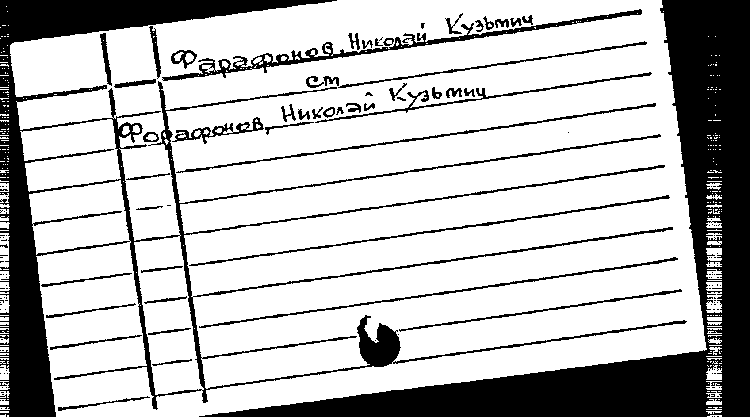 Фарафонов, Николай Кузьмич
см
Форафонов, Николай Кузьмич